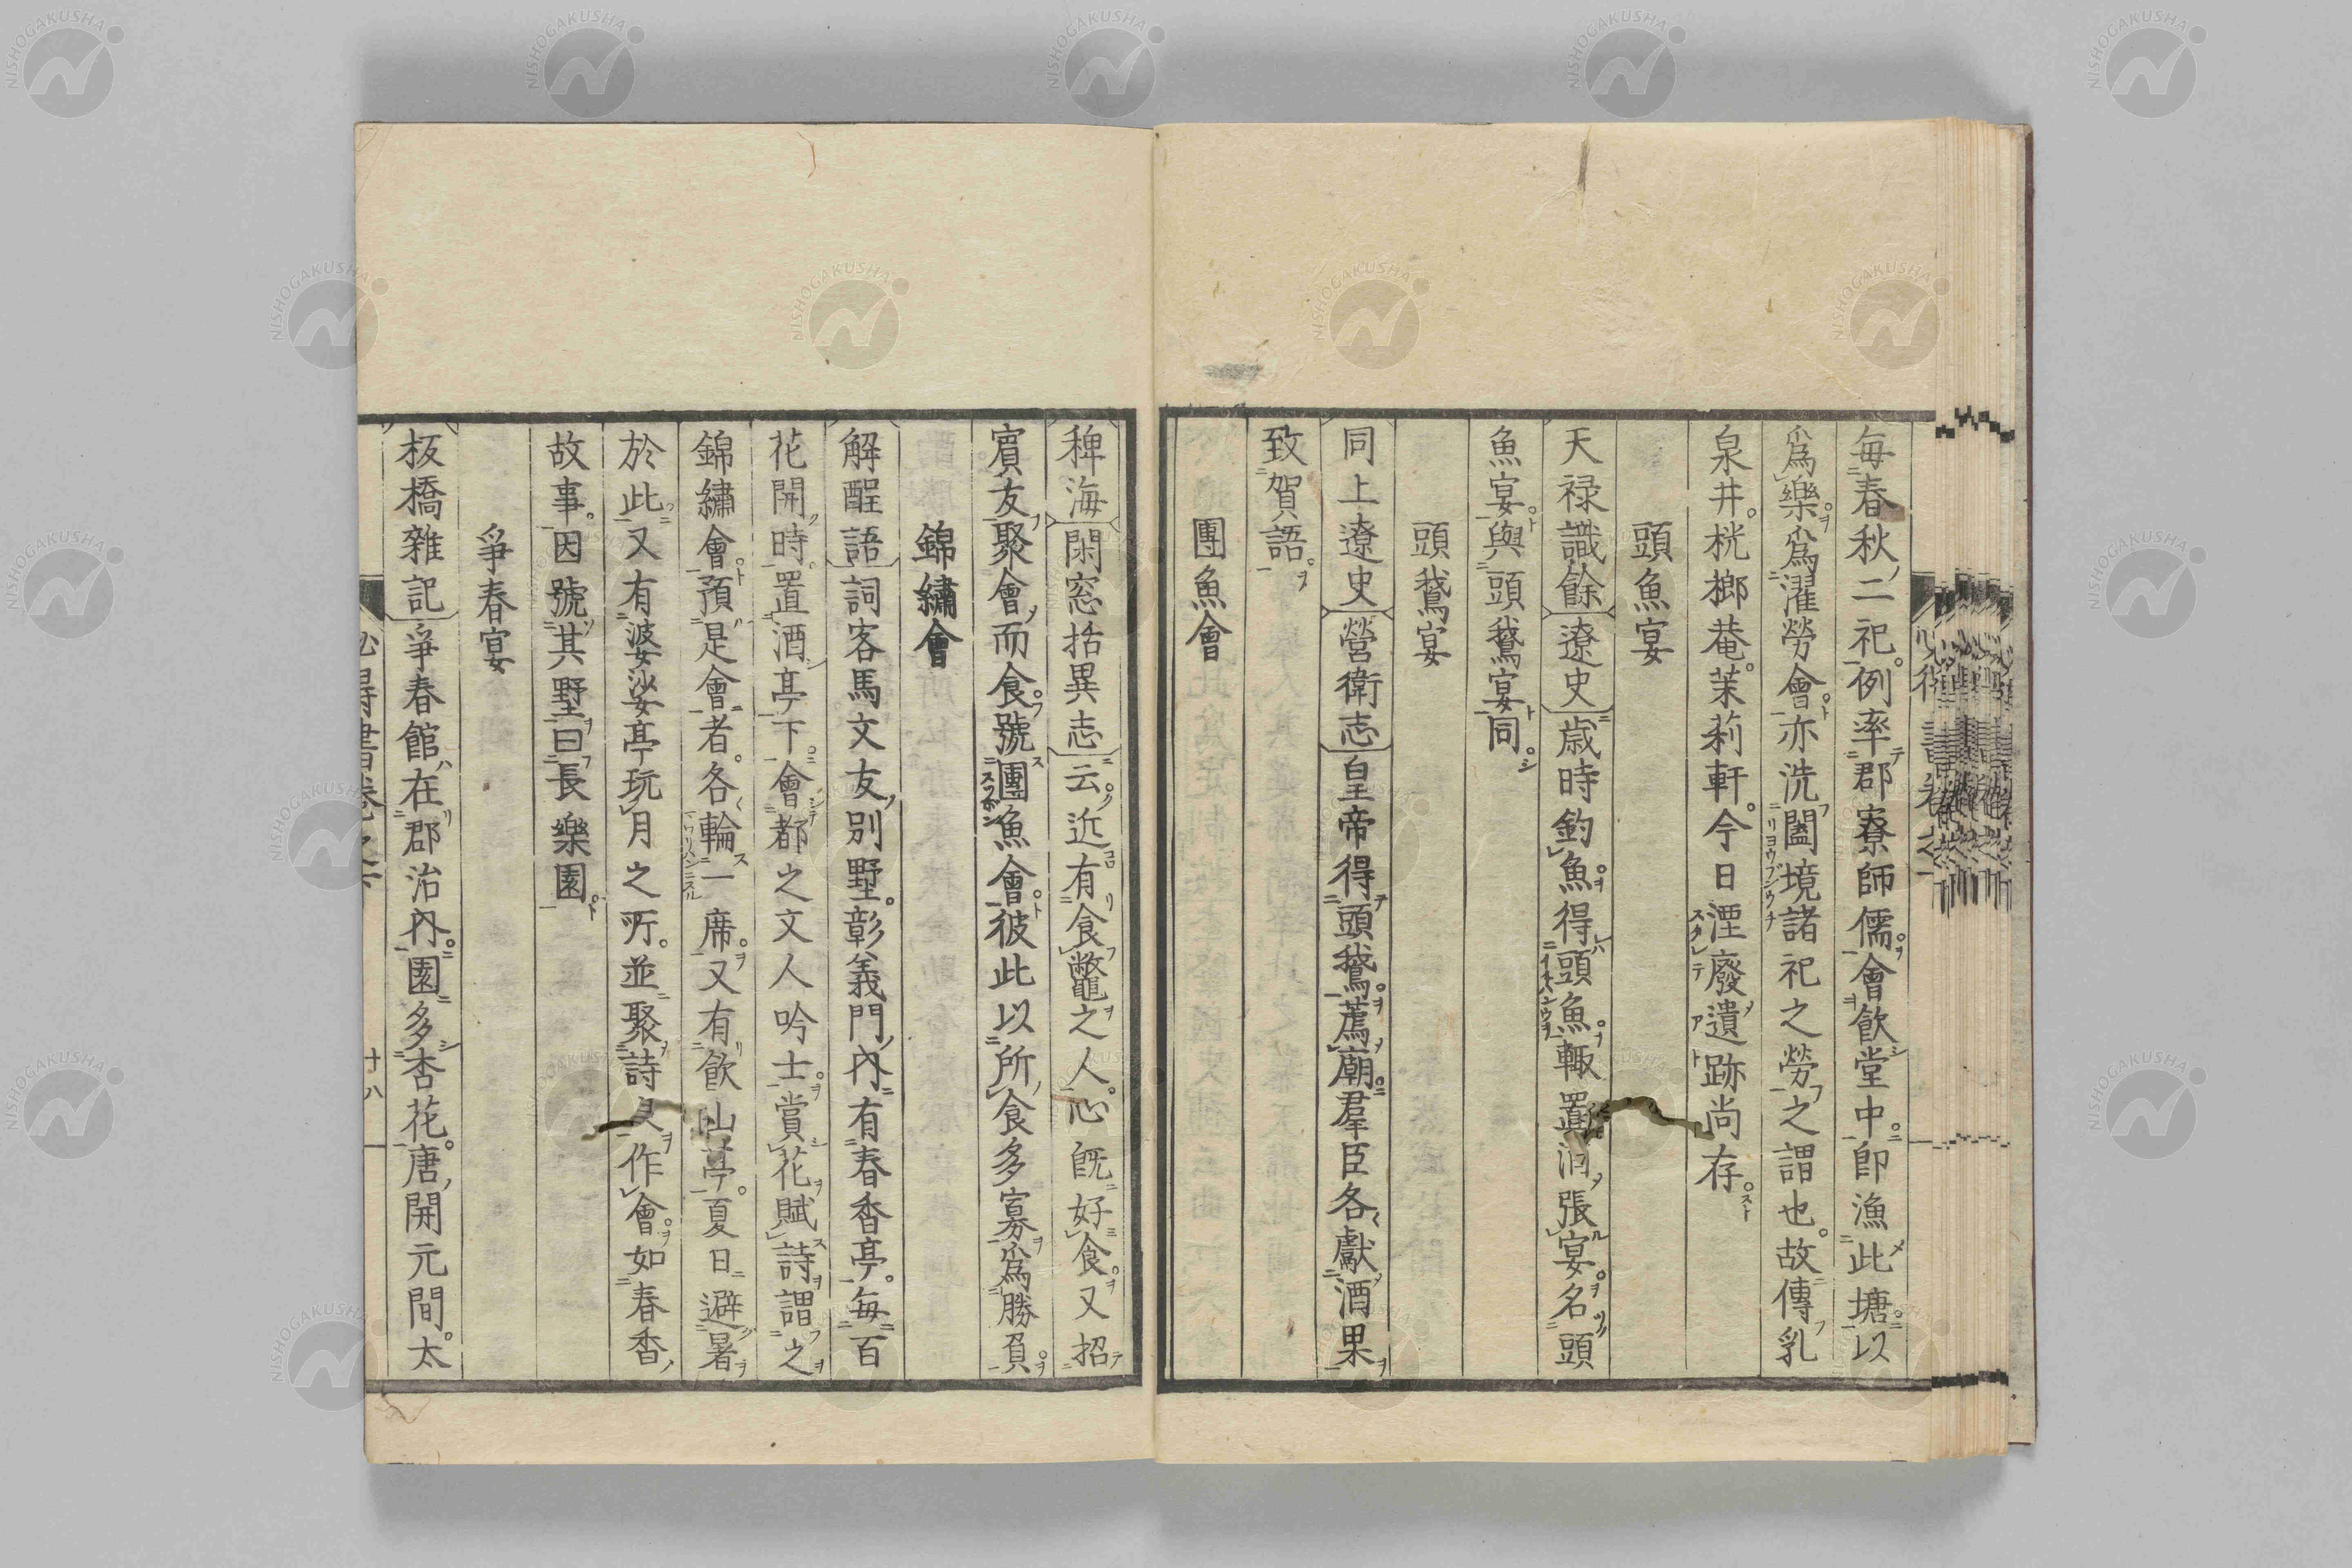 毎春秋二祀例率郡寮師儒會飲堂中卽漁此塘以
爲樂爲濯勞會亦洗闔境諸祀之勞之謂也故傳乳
泉井桄榔菴茉莉軒今日湮廢遺跡尚存
頭魚宴
天禄識餘遼史歳時釣魚得頭魚輙置酒張宴名頭
魚宴與頭鵞宴同
頭鵞宴
同上遼史營衛志皇帝得頭鵞薦廟羣臣各獻酒果
致賀語
團魚會
稗海閑窓括異志云近有食鼈之人心既好食又招
賓友聚會而食號團魚會彼此以所食多寡爲勝負
錦繡會
解酲語詞客馬文友別墅彰義門内有春香亭毎百
花開時置酒亭下會都之文人吟士賞花賦詩謂之
錦繡會預是會者各輪一席又有飲山亭夏日避暑
於此又有婆娑亭玩月之所並聚詩作會如春香
故事因號其墅曰長樂園
爭春宴
板橋雜記爭春館在郡治内園多杏花唐開元間太
十八
NISHOGAKUSHA